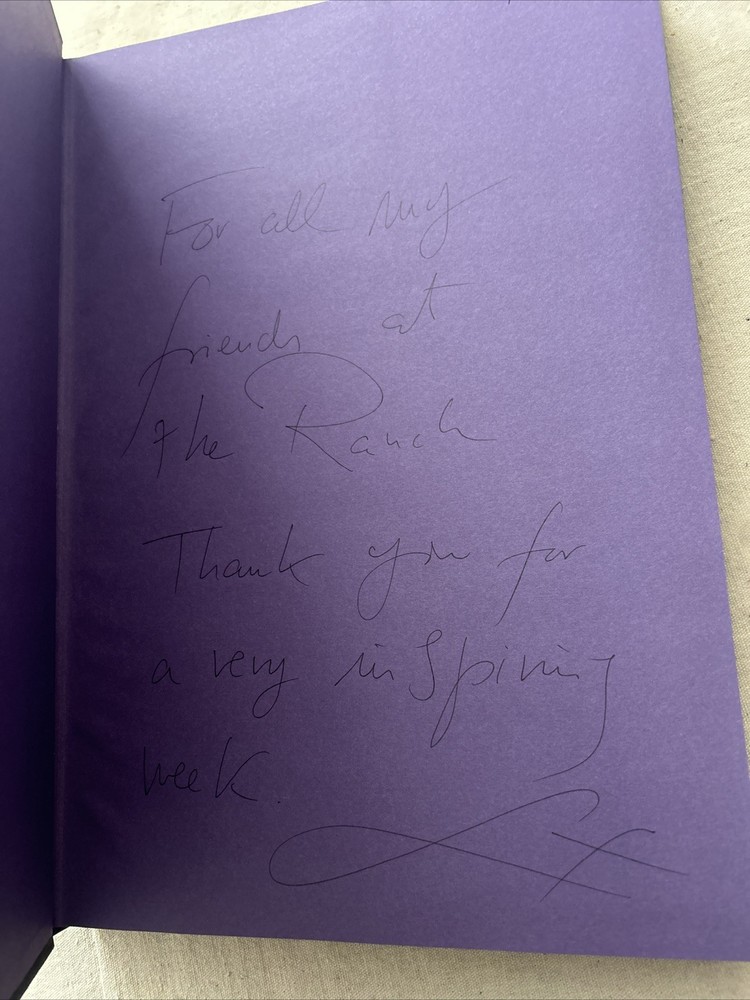 For all my
friends at
the Ranch
Thank you for
a very inspiring
week.
x